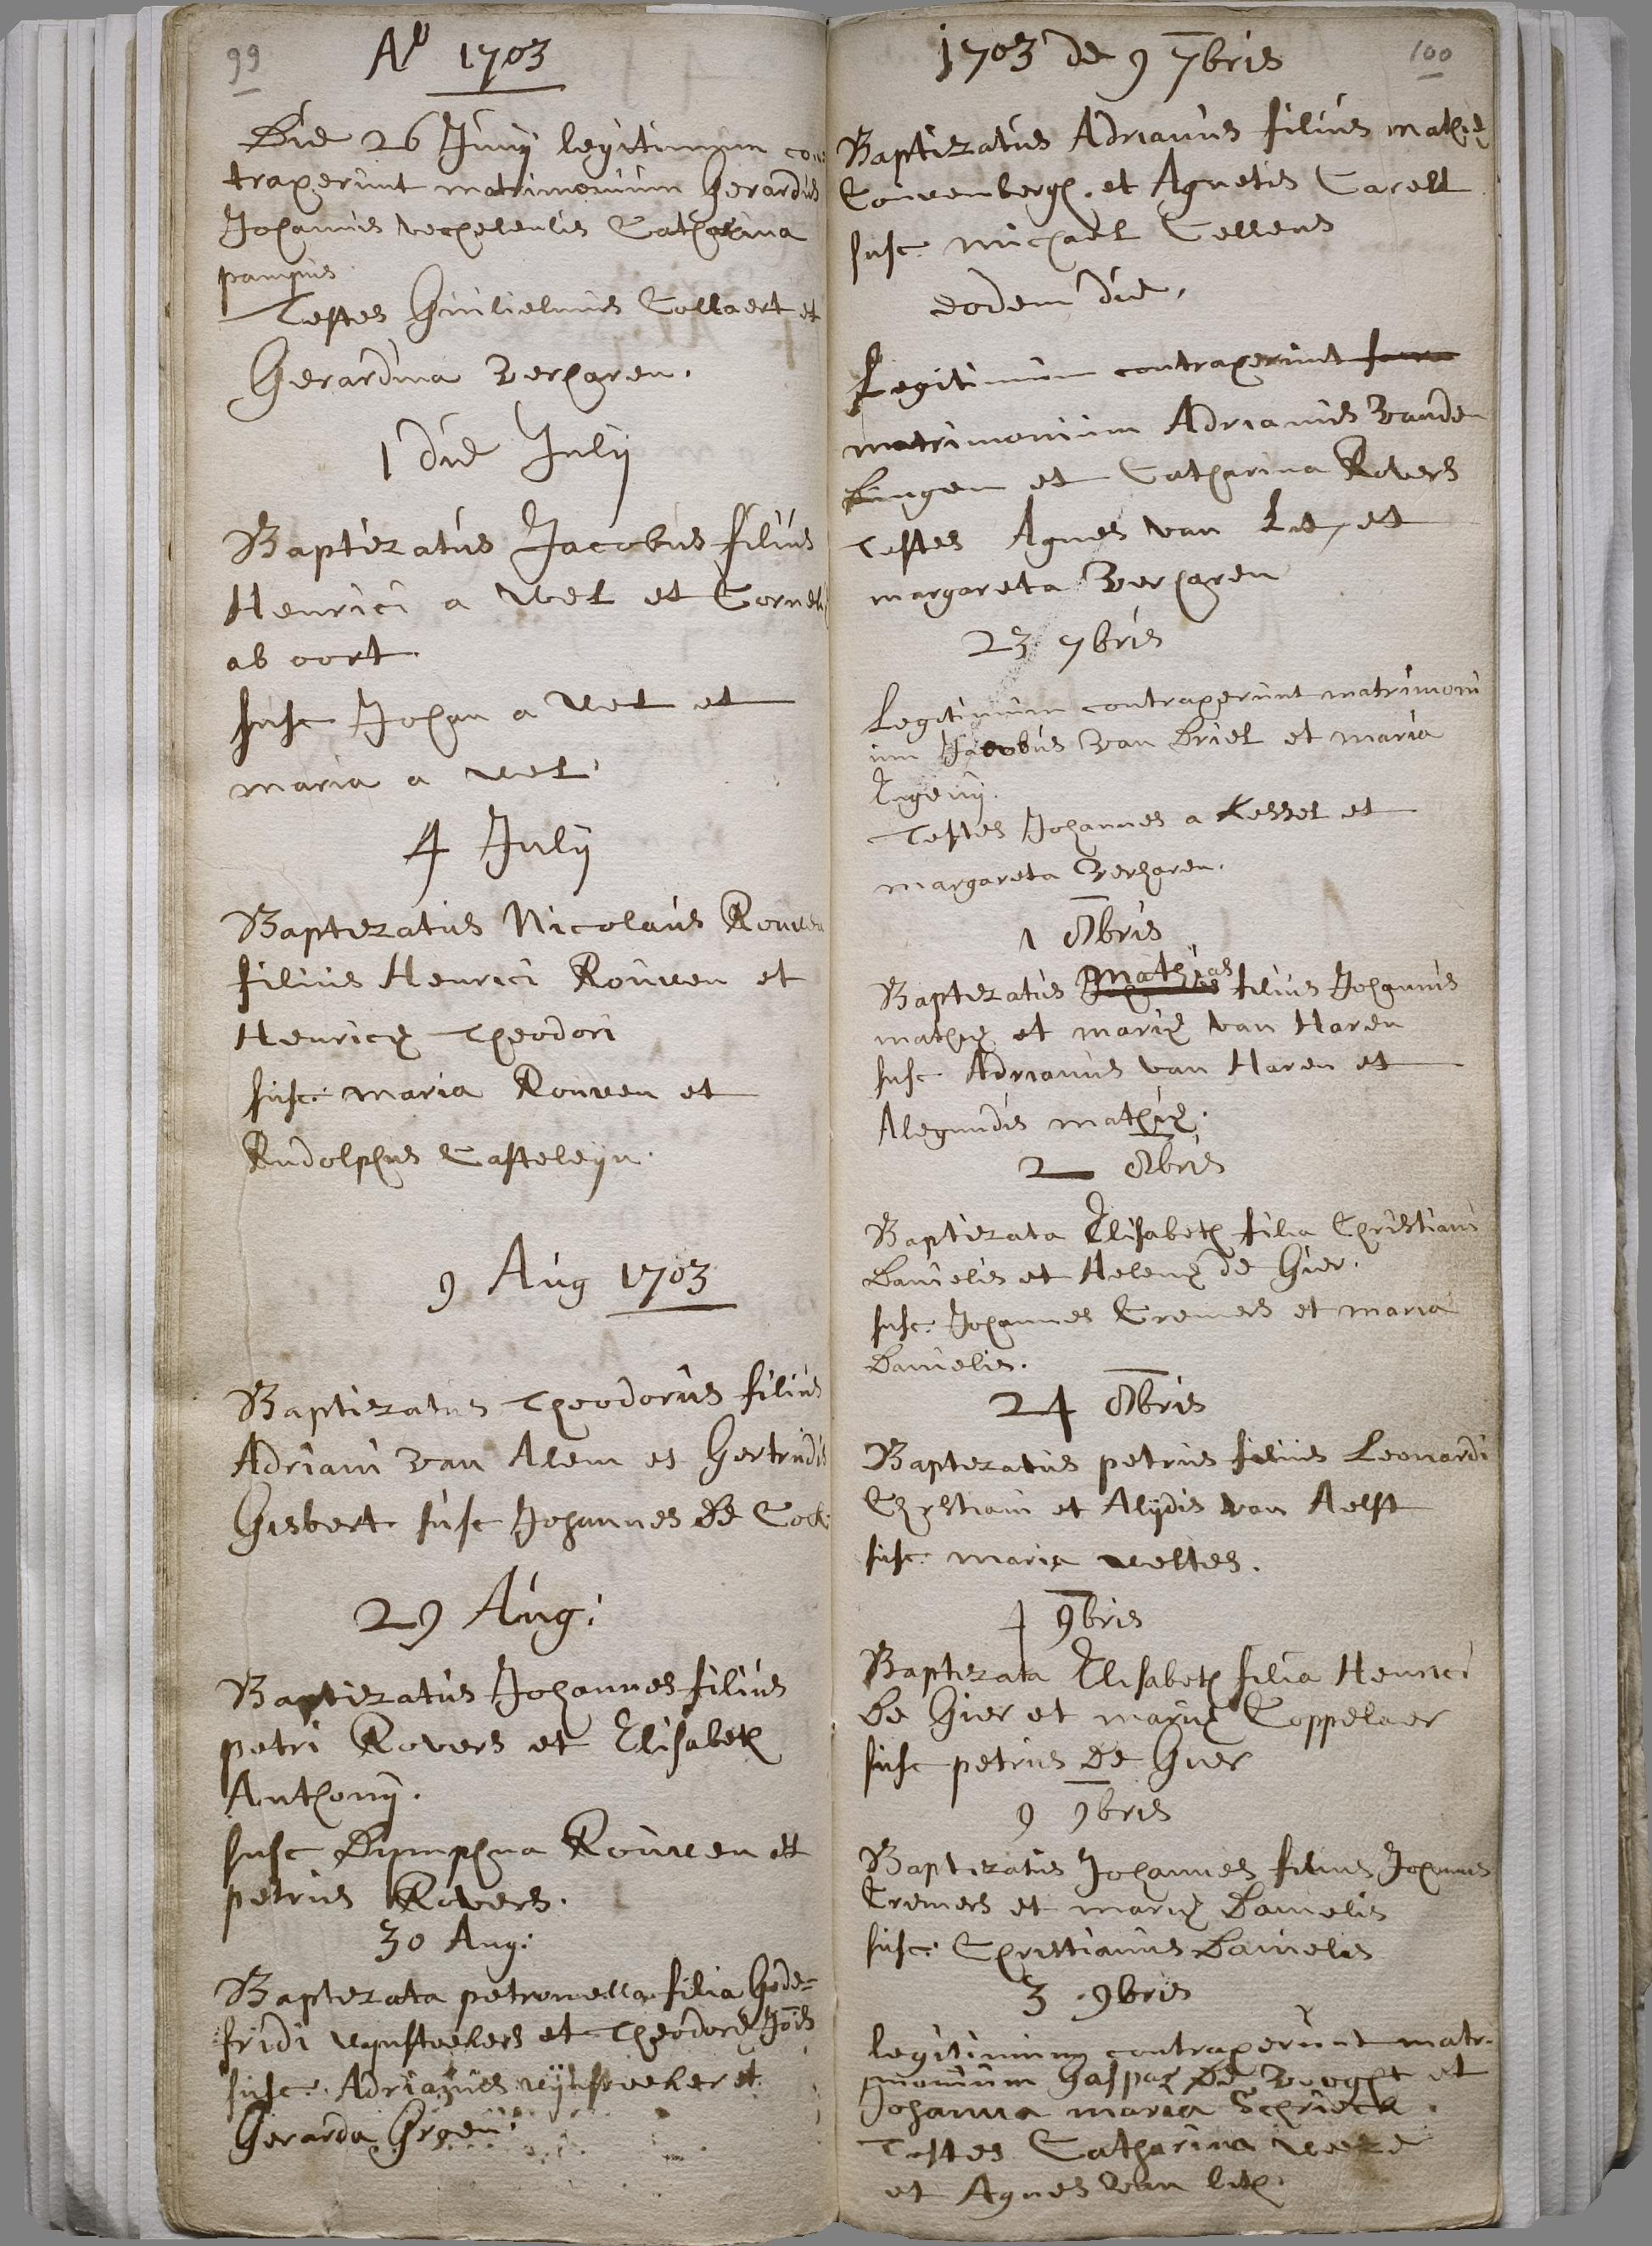 99
Aº 1703
Die 26 Junij legitimum con
traxerunt matrimonium Gerardus
Johannis et Catharina
pompus
Testes Guilielmus Collaert et
Gerardina Verharen.
1 die Julij
Baptizatus Jacobus filius
Henrici a Wel et Corneli
ab oort
susc Johan a Wel et
maria a wel
4 Julij
Baptizatus Nicolaus Rouwen
filius Henrici Rouwen et
Henricę Theodori
susc: maria Rouwen et
Rudolphus Casteleijn.
9 Aug 1703
Baptizatus Theodorus filius
Adriani van Alem et Gertrudis
Gisbert susc Johannes de Cock
29 Aug:
Baptizatus Johannes filius
petri Rovers et Elisabeth
Anthonij.
susc Dijmphna Rouwen et
petrus Rovers.
30 Aug:
Baptizata petronella filia Gode=
fridi wijnstekers et Theodorę Jois
susc. Adrianus wijnsteeker et
Gerarda
100
1703 de 9 7bris
Baptizatus Adrianus filius mathię
Couwenbergh. et Agnetis Carell
susc. michael Cellens
eodem die,
Legitimum contraxerunt
matrimonium Adrianus vande
Lingen et Catharina Rovers
Testes Agnes van Lit, et
margareta Verharen
23 7bris
Legitimum contraxerunt matrimoni
um Jacobus van Driel et maria
Eugenij.
Testes Johannes a Kessel et
margareta Verharen.
1 8bris
Baptizatus mathias filius Johannis
mathię et marię van Haren
susc Adrianus van Haren et
Alegundis mathię.
2 8bris
Baptizata Elisabeth filia Christiani
Danielis et Helenę de Gier.
susc. Johannes Cremers et maria
Danielis.
24 8bris
Baptizatus petrus filius Leonardi
Christiani et Alijdis van Aelst
susc. maria weltes.
4 9bris
Baptizata Elisabeth filia Henrici
De Gier et marię Coppelaer
susc petrus De Gier
9 9bris
Baptizatus Johannes filius Johannis
Cremers et marię Danielis
susc: Christianus Danielis
3 9bris
legitimum contraxerunt matr-
imonium Gaspar De et
Johanna maria Schrieck.
Testes Catharina
et Agnes van lith.